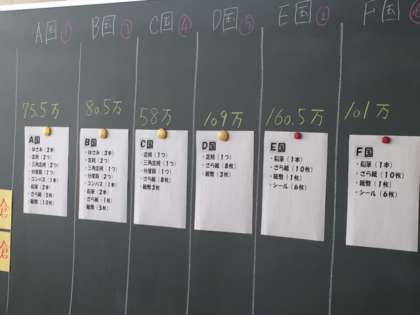 A国
B国
C国
D国
E国
F国
75.5万
80.5万
58万
109万
160.5万
101万
A国
・はさみ（2本）
・定規（2つ）
・三角定規（2つ）
・分度器（2つ）
・コンパス（1本）
・鉛筆（2本）
・ざら紙（1枚）
・紙幣（10枚）
B国
・はさみ（3本）
・定規（2つ）
・三角定規（1つ）
・分度器（2つ）
・コンパス（2本）
・鉛筆（2本）
・ざら紙（1枚）
・紙幣（5枚）
C国
・定規（1つ）
・三角定規（1つ）
・分度器（1つ）
・ざら紙（8枚）
・紙幣3枚
D国
・定規（1つ）
・ざら紙（8枚）
・紙幣（3枚）
E国
・鉛筆（1本）
・ざら紙（10枚）
・紙幣（1枚）
・シール（6枚）
F国
・鉛筆（1本）
・ざら紙（10枚）
・紙幣（1枚）
・シール（6枚）